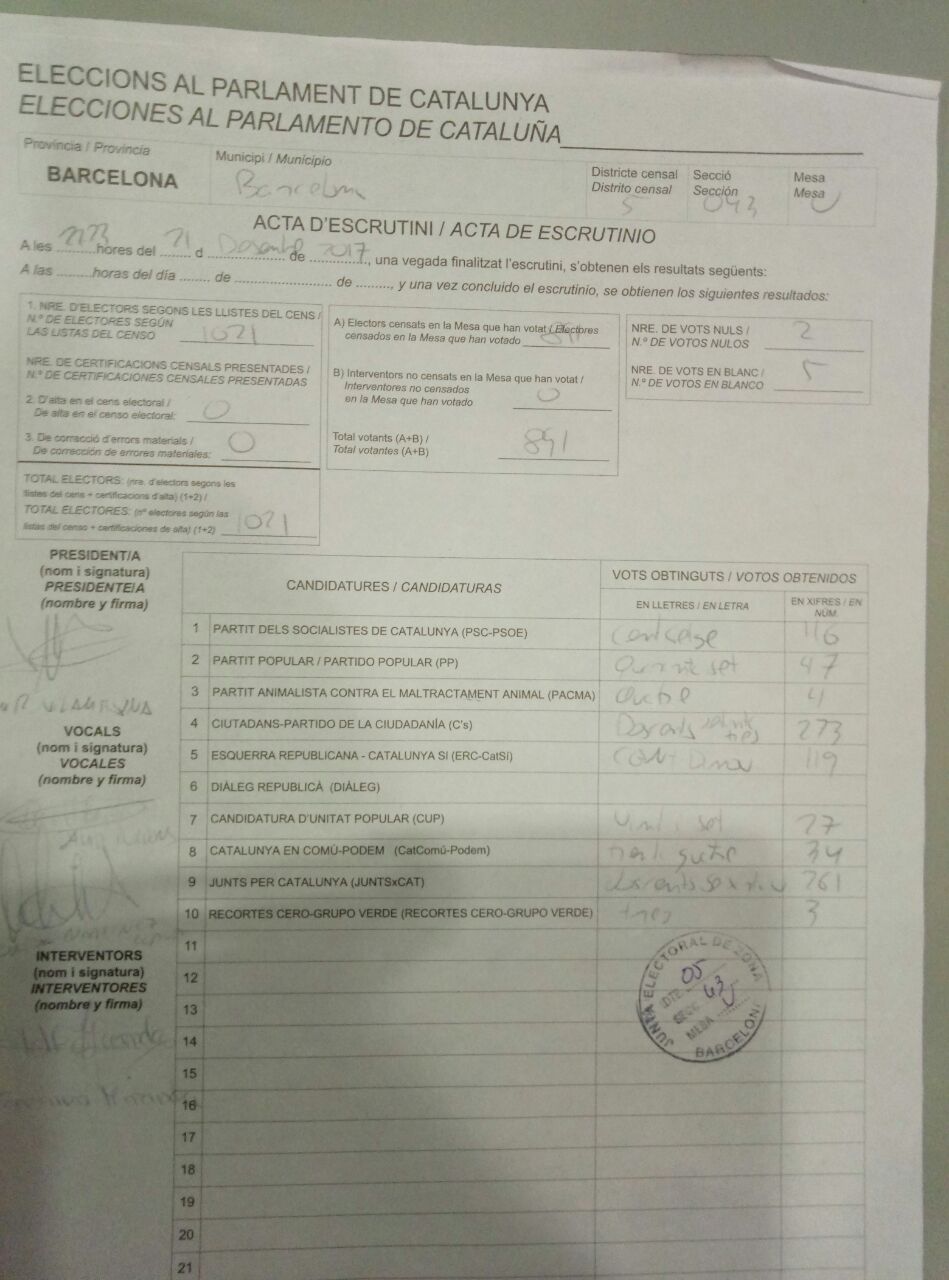 ELECCIONS AL PARLAMENT DE CATALUNYA
ELECCIONES AL PARLAMENTO DE CATALUÑA
Provincia / Provincia
BARCELONA
Municipi / Municipio
Barcelona
Districte censal
Distrito censal
5
Secció
Sección
043
Mesa
Mesa
U
ACTA D'ESCRUTINI / ACTA DE ESCRUTINIO
A les ......... hores del 21 d Desembre de 2017, una vegada finalitzat l'escrutini, s'obtenen els resultats següents:
A las .......... horas del día ........ de ........................ de ........., y una vez concluido el escrutinio, se obtienen los siguientes resultados:
1. NRE. D'ELECTORS SEGONS LES LLISTES DEL CENS /
N.º DE ELECTORES SEGÚN
LAS LISTAS DEL CENSO 1021
NRE. DE CERTIFICACIONS CENSALS PRESENTADES /
N.º DE CERTIFICACIONES CENSALES PRESENTADAS
2. D'alta en el cens electoral /
De alta en el censo electoral: 0
3. De correcció d'errors materials /
De corrección de errores materiales: 0
TOTAL ELECTORS: (nre. d'electors segons les
llistes del cens + certificacions d'alta) (1+2) /
TOTAL ELECTORES: (nº electores según las
listas del censo + certificaciones de alta) (1+2) 1021
A) Electors censats en la Mesa que han votat / Electores
censados en la Mesa que han votado 891
B) Interventors no censats en la Mesa que han votat /
Interventores no censados
en la Mesa que han votado 0
Total votants (A+B) /
Total votantes (A+B) 891
NRE. DE VOTS NULS /
N.º DE VOTOS NULOS 2
NRE. DE VOTS EN BLANC /
N.º DE VOTOS EN BLANCO 5
PRESIDENT/A
(nom i signatura)
PRESIDENTE/A
(nombre y firma)
VOCALS
(nom i signatura)
VOCALES
(nombre y firma)
INTERVENTORS
(nom i signatura)
INTERVENTORES
(nombre y firma)
CANDIDATURES / CANDIDATURAS
VOTS OBTINGUTS / VOTOS OBTENIDOS
EN LLETRES / EN LETRA
EN XIFRES / EN NÚM.
1 PARTIT DELS SOCIALISTES DE CATALUNYA (PSC-PSOE) 116
2 PARTIT POPULAR / PARTIDO POPULAR (PP) set 47
3 PARTIT ANIMALISTA CONTRA EL MALTRACTAMENT ANIMAL (PACMA) 4
4 CIUTADANS-PARTIDO DE LA CIUDADANÍA (C's) 273
5 ESQUERRA REPUBLICANA - CATALUNYA SÍ (ERC-CatSí) 119
6 DIÀLEG REPUBLICÀ (DIÀLEG)
7 CANDIDATURA D'UNITAT POPULAR (CUP) Vint i set 27
8 CATALUNYA EN COMÚ-PODEM (CatComú-Podem) 34
9 JUNTS PER CATALUNYA (JUNTSxCAT) 261
10 RECORTES CERO-GRUPO VERDE (RECORTES CERO-GRUPO VERDE) tres 3
11
12
13
14
15
16
17
18
19
20
21
JUNTA ELECTORAL DE ZONA
DTE. 05
SECC. 43
MESA U
BARCELONA